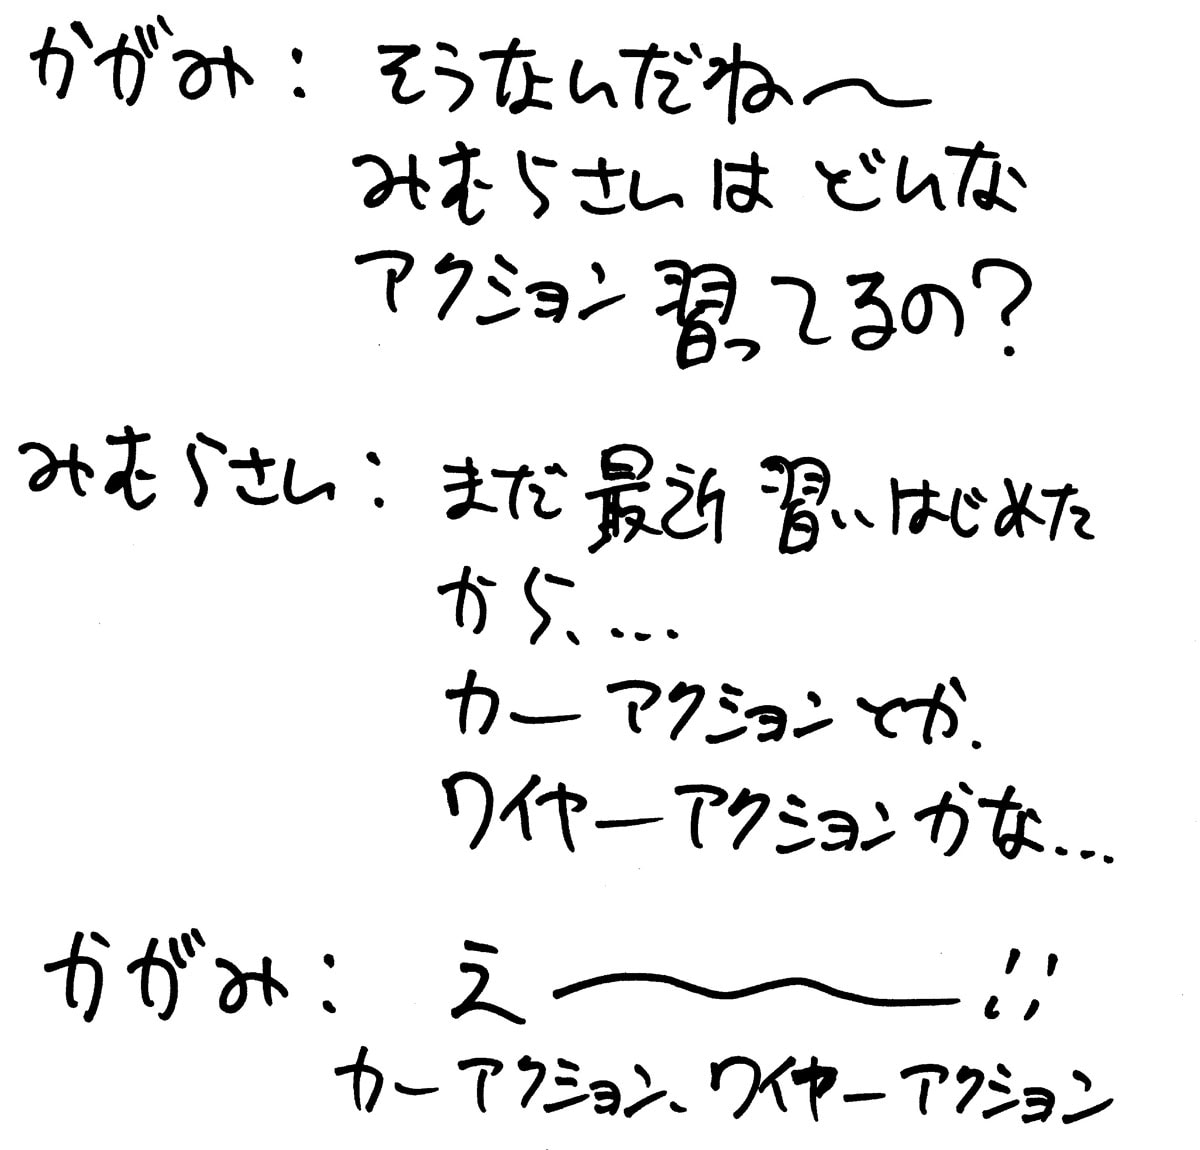 かがみ： そうなんだね〜
みむらさんは どんな
アクション 習ってるの？
みむらさん： まだ 最近 習いはじめた
から、…
カーアクションとか.
ワイヤーアクションかな…
かがみ： え〜〜!!
カーアクション、ワイヤーアクション